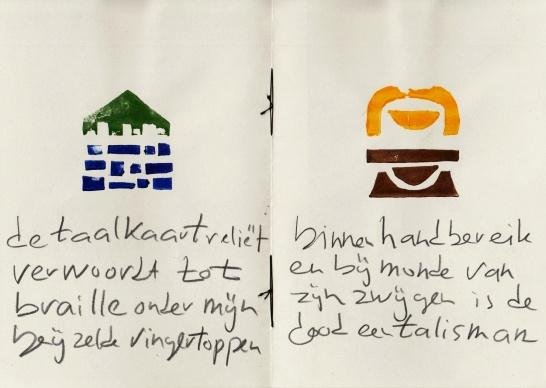 de taalkaart reliëf
verwoordt tot
braille onder mijn
beijzelde vingertoppen
binnen handbereik
en bij monde van
zijn zwijgen is de
dood een talisman